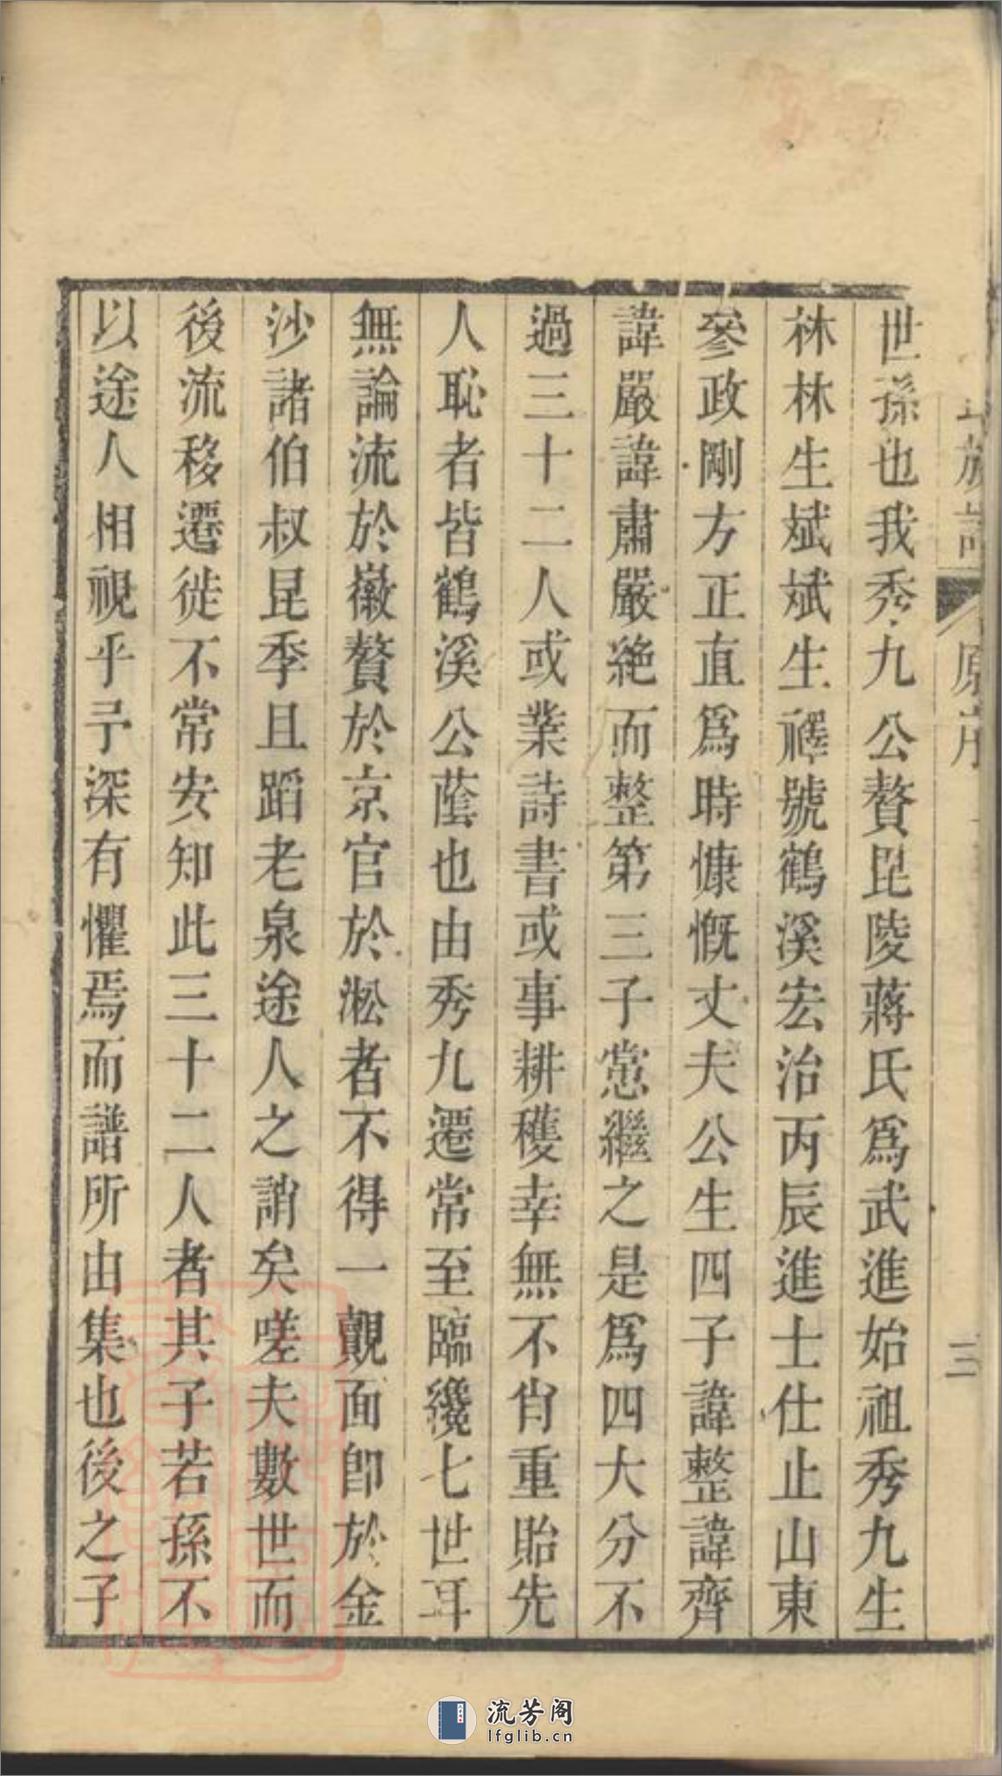 世孫也我秀九公贅毘陵蔣氏爲武進始祖秀九生
林生斌斌生禪號鶴溪宏治丙辰進士仕止山東
參政剛方正直爲時慷慨丈夫公生四子諱整諱齊
諱嚴諱肅嚴絶而整第三子黨繼之是爲四大分不
過三十二人或業詩書或事耕穫幸無不肖重貽先
人恥者皆鶴溪公蔭也由秀九遷常至臨纔七世耳
無論流於徽贅於京官於淞者不得一覿面卽於金
沙諸伯叔昆季且蹈老泉途人之誚矣嗟夫數世而
後流移遷徙不常安知此三十二人者其子若孫不
以途人相視乎予深有懼焉而譜所由集也後之子
族譜
原序
三
流芳阁
lfglib.cn